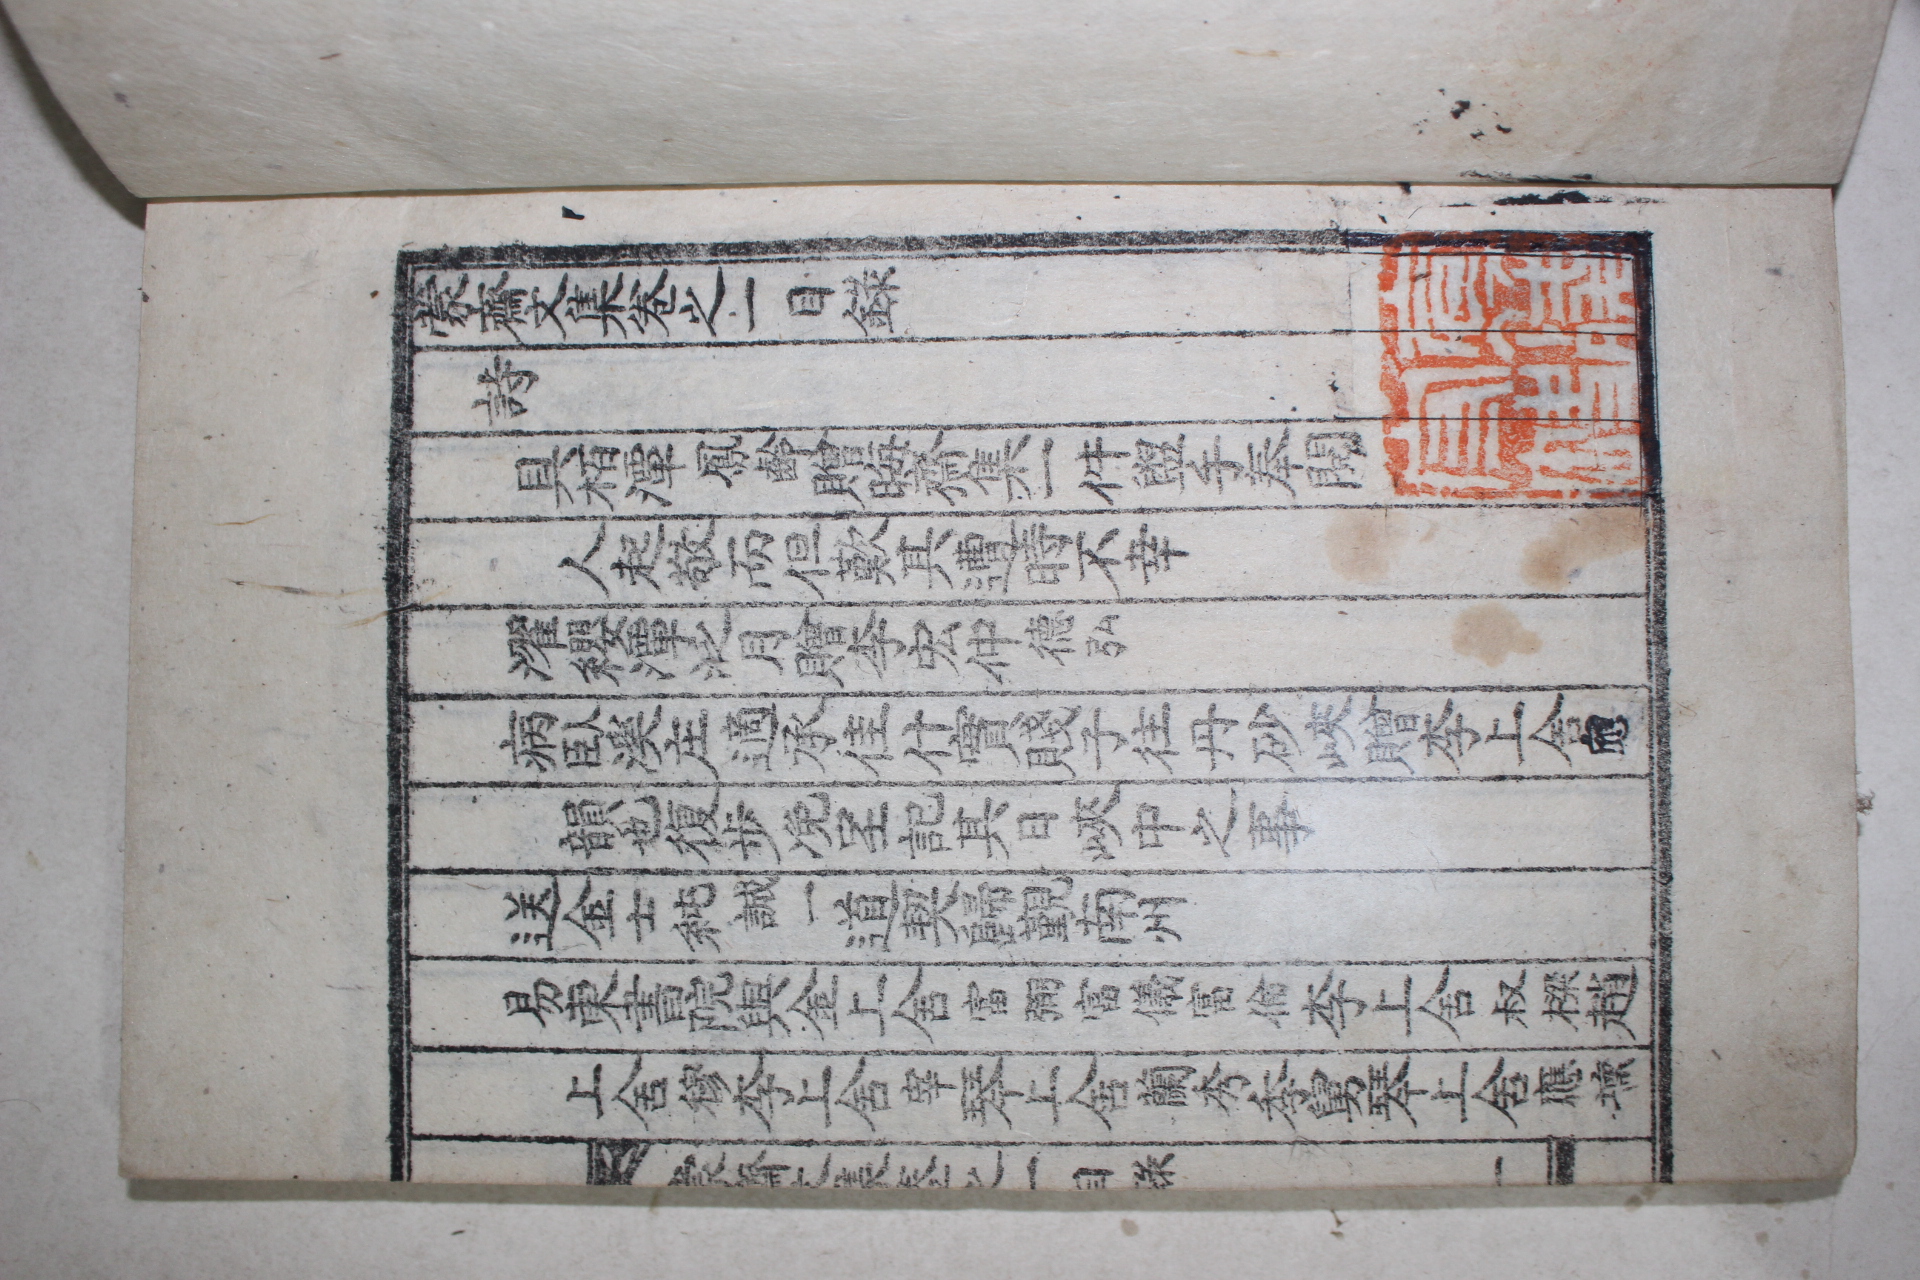 蒙齋文集卷之一目錄
詩
具栢潭鳳齡贈晦齋集一件盥手奉閱
人起敬而但歎其遭時不幸
濯纓潭泛月贈李宏仲德弘
病臥溪庄適承佳什實賤子往丹砂峽贈李上舍
韻也復步浼呈記其日峽中之事
送金士純誠一道契歸覲南州
易東書院與金上舍富弼富儀富倫李上舍叔樑趙
上舍穆李上舍宰琴上舍蘭秀季舅琴上舍應壎
蒙齋文集卷之一 目錄 一